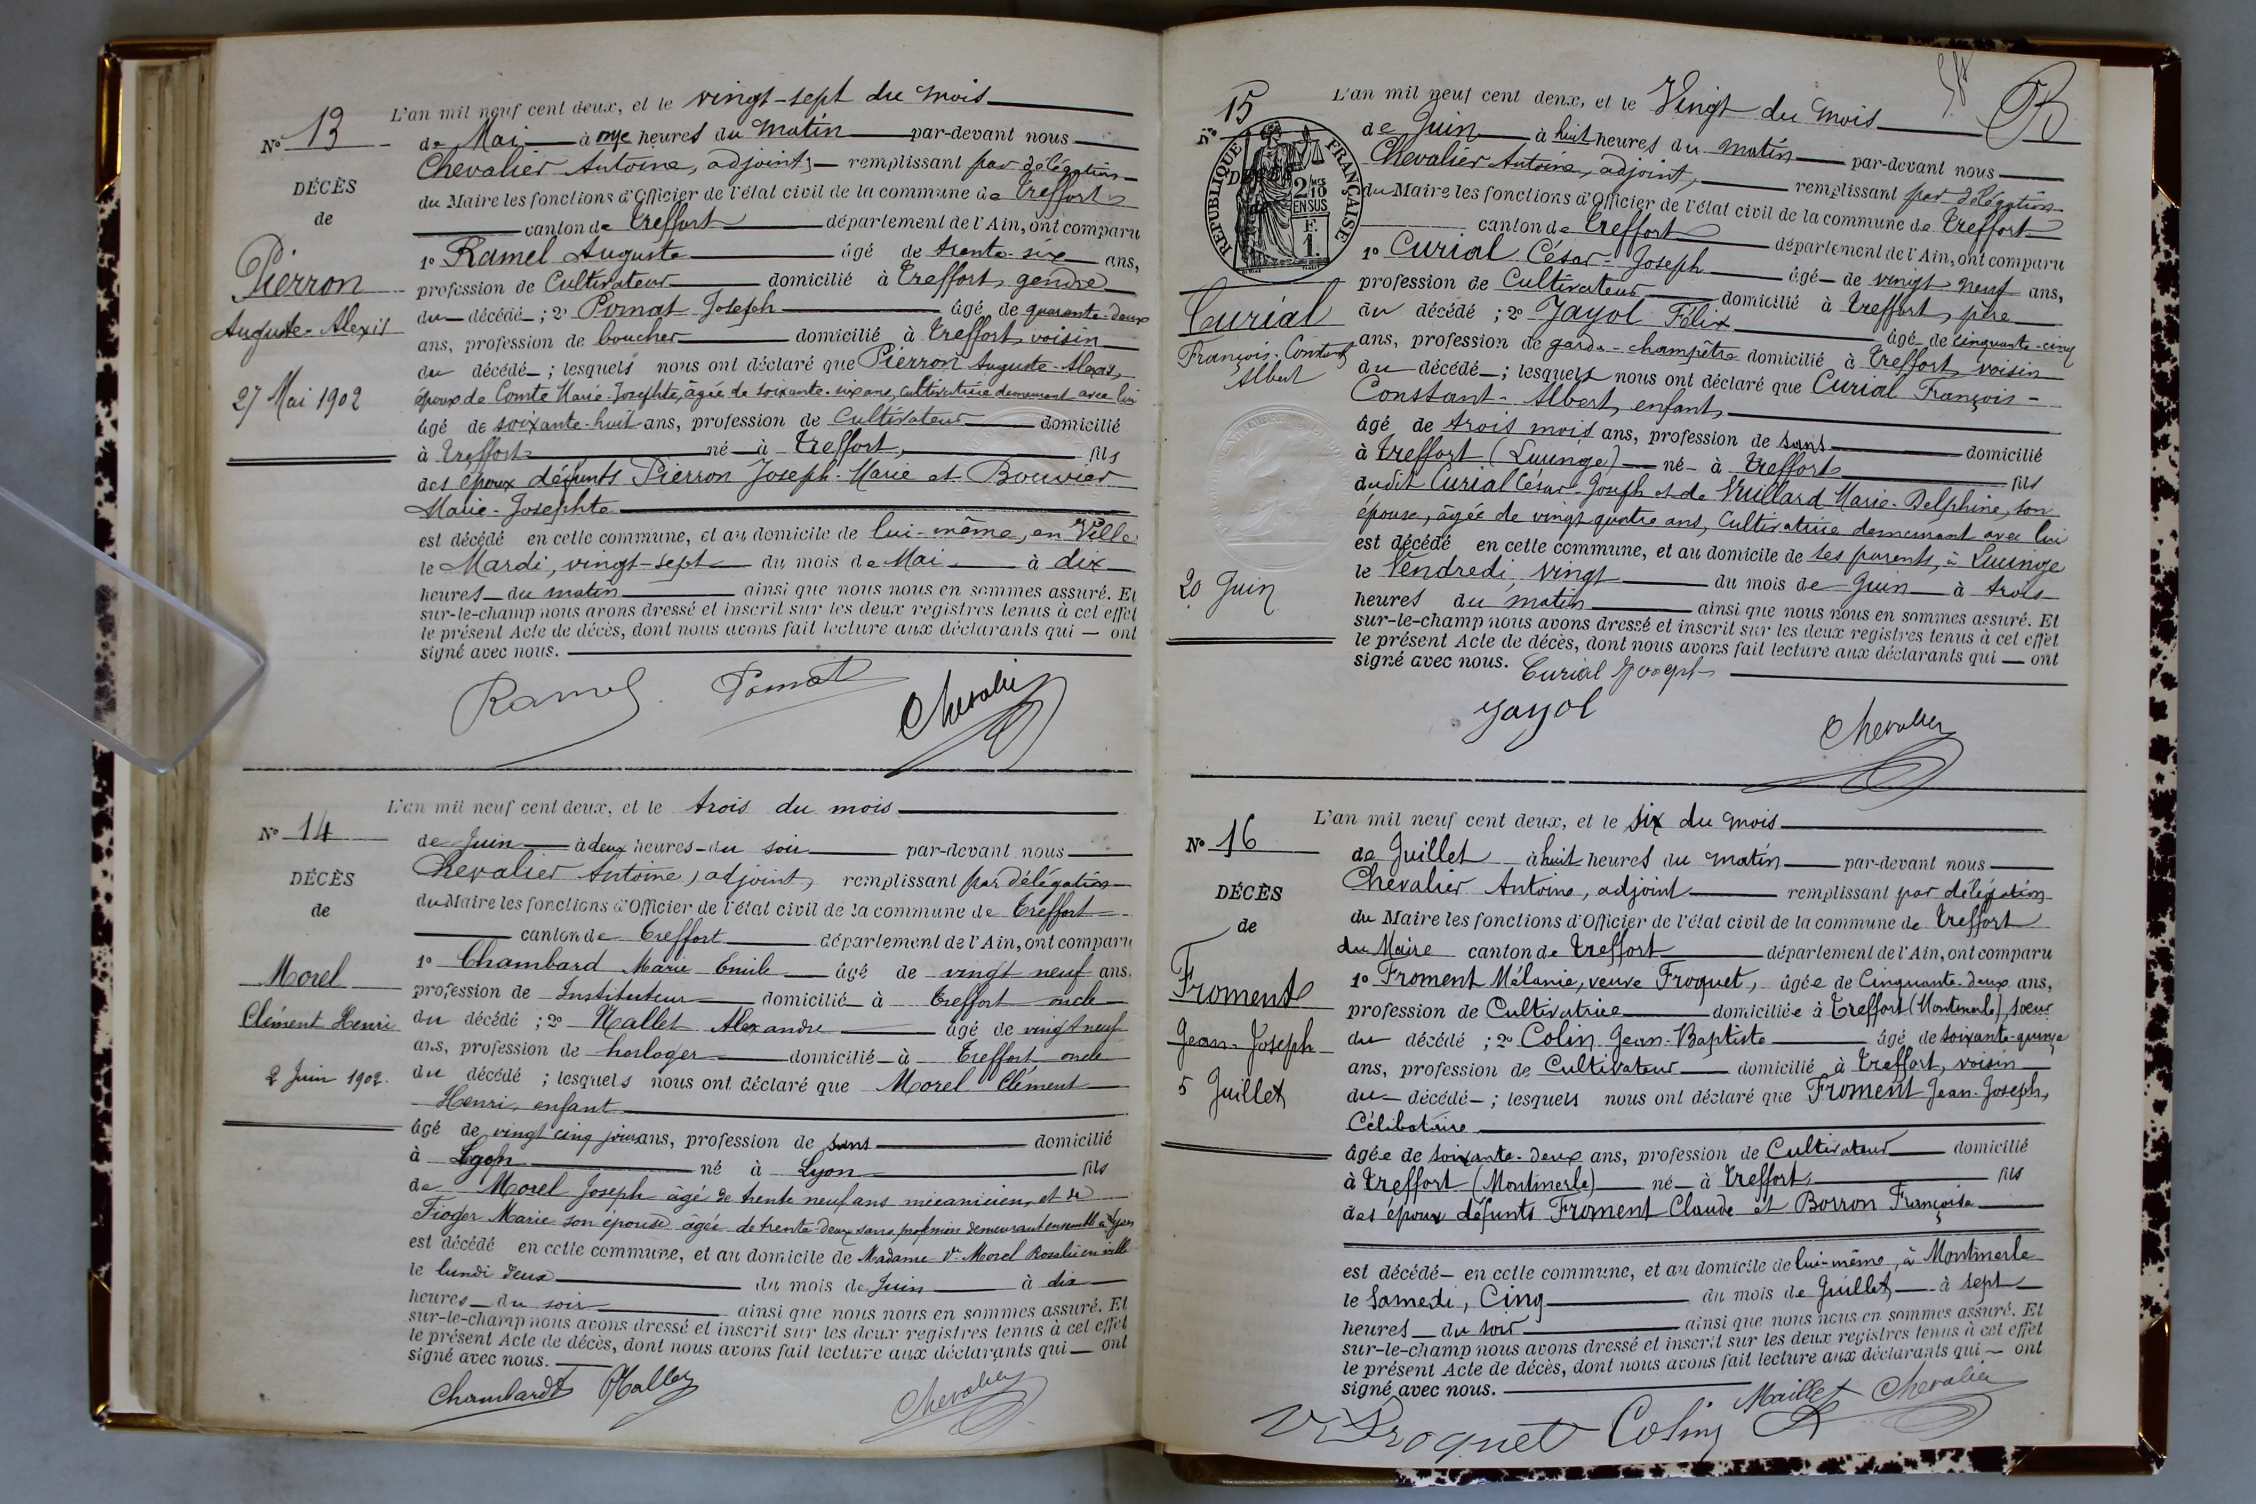 L'an mil neuf cent deux, et le vingt-sept du mois
No 13
de Mai à onze heures du matin par-devant nous
Chevalier Antoine, adjoint, remplissant par délégation
DÉCÈS
du Maire les fonctions d'Officier de l'état civil de la commune de Treffort
de
canton de Treffort département de l'Ain, ont comparu
1o Ramel Auguste âgé de trente-six ans,
Pierron
profession de Cultivateur domicilié à Treffort, gendre
Auguste-Alexis
du décédé ; 2o Pomat Joseph âgé de quarante-deux
ans, profession de boucher domicilié à Treffort, voisin
du décédé ; lesquels nous ont déclaré que Pierron Auguste-Alexis,
27 Mai 1902
époux de Comte Marie-Josephte, âgée de soixante-six ans, cultivatrice demeurant avec lui
âgé de soixante-huit ans, profession de Cultivateur domicilié
à Treffort né à Treffort, fils
des époux défunts Pierron Joseph-Marie et Bouvier
Marie-Josephte
est décédé en cette commune, et au domicile de lui-même, en Ville
le Mardi, vingt-sept du mois de Mai à dix
heures du matin ainsi que nous nous en sommes assuré. Et
sur-le-champ nous avons dressé et inscrit sur les deux registres tenus à cet effet
le présent Acte de décès, dont nous avons fait lecture aux déclarants qui — ont
signé avec nous.
Ramel Pomat Chevalier
L'an mil neuf cent deux, et le trois du mois
No 14
de Juin à deux heures du soir par-devant nous
Chevalier Antoine, adjoint, remplissant par délégation
DÉCÈS
du Maire les fonctions d'Officier de l'état civil de la commune de Treffort
de
canton de Treffort département de l'Ain, ont comparu
1o Chambard Marie Emile âgé de vingt neuf ans,
Morel
profession de Instituteur domicilié à Treffort oncle
Clément Henri
du décédé ; 2o Mallet Alexandre âgé de vingt neuf
ans, profession de horloger domicilié à Treffort oncle
2 Juin 1902.
du décédé ; lesquels nous ont déclaré que Morel Clément
Henri, enfant
âgé de vingt cinq jours ans, profession de sans domicilié
à Lyon né à Lyon fils
de Morel Joseph âgé de trente neuf ans mécanicien, et de
Marie son épouse âgée de trente-deux sans profession demeurant ensemble à Lyon
est décédé en cette commune, et au domicile de Madame Ve Morel Rosalie en ville
le lundi deux du mois de Juin à dix
heures du soir ainsi que nous nous en sommes assuré. Et
sur-le-champ nous avons dressé et inscrit sur les deux registres tenus à cet effet
le présent Acte de décès, dont nous avons fait lecture aux déclarants qui — ont
signé avec nous.
Chambard Mallet Chevalier
L'an mil neuf cent deux, et le Vingt du mois
No 15
de Juin à huit heures du matin par-devant nous
Chevalier Antoine, adjoint, remplissant par délégation
DÉCÈS
du Maire les fonctions d'Officier de l'état civil de la commune de Treffort
RÉPUBLIQUE FRANÇAISE
2/10 EN SUS
F. 1.
canton de Treffort département de l'Ain, ont comparu
1o Curial César-Joseph âgé de vingt neuf ans,
profession de Cultivateur domicilié à Treffort, père
Curial
du décédé ; 2o Jayol Félix âgé de cinquante-cinq
François-Constant
Albert
ans, profession de garde-champêtre domicilié à Treffort, voisin
du décédé ; lesquels nous ont déclaré que Curial François-
Constant-Albert, enfant,
âgé de trois mois ans, profession de sans domicilié
à Treffort (Lucinge) né à Treffort fils
dudit Curial César-Joseph et de Vuillard Marie-Delphine, son
épouse, âgée de vingt quatre ans, Cultivatrice demeurant avec lui
est décédé en cette commune, et au domicile de ses parents, à Lucinge
20 Juin
le Vendredi, vingt du mois de Juin à trois
heures du matin ainsi que nous nous en sommes assuré. Et
sur-le-champ nous avons dressé et inscrit sur les deux registres tenus à cet effet
le présent Acte de décès, dont nous avons fait lecture aux déclarants qui — ont
signé avec nous. Curial Joseph
Jayol Chevalier
L'an mil neuf cent deux, et le Six du mois
No 16
de Juillet à huit heures du matin par-devant nous
Chevalier Antoine, adjoint remplissant par délégation
DÉCÈS
du Maire les fonctions d'Officier de l'état civil de la commune de Treffort
de
du Maire canton de Treffort département de l'Ain, ont comparu
1o Froment Mélanie, veuve Froquet, âgée de Cinquante-deux ans,
Froment
profession de Cultivatrice domiciliée à Treffort (Montmerle), sœur
Jean-Joseph
du décédé ; 2o Colin Jean-Baptiste âgé de soixante-quinze
ans, profession de Cultivateur domicilié à Treffort, voisin
5 Juillet
du décédé ; lesquels nous ont déclaré que Froment Jean-Joseph,
Célibataire
âgée de soixante-deux ans, profession de Cultivateur domicilié
à Treffort (Montmerle) né à Treffort, fils
des époux défunts Froment Claude et Borron Françoise
est décédé en cette commune, et au domicile de lui-même, à Montmerle
le Samedi, Cinq du mois de Juillet à sept
heures du soir ainsi que nous nous en sommes assuré. Et
sur-le-champ nous avons dressé et inscrit sur les deux registres tenus à cet effet
le présent Acte de décès, dont nous avons fait lecture aux déclarants qui — ont
signé avec nous.
Ve Froquet Colin Maillet Chevalier